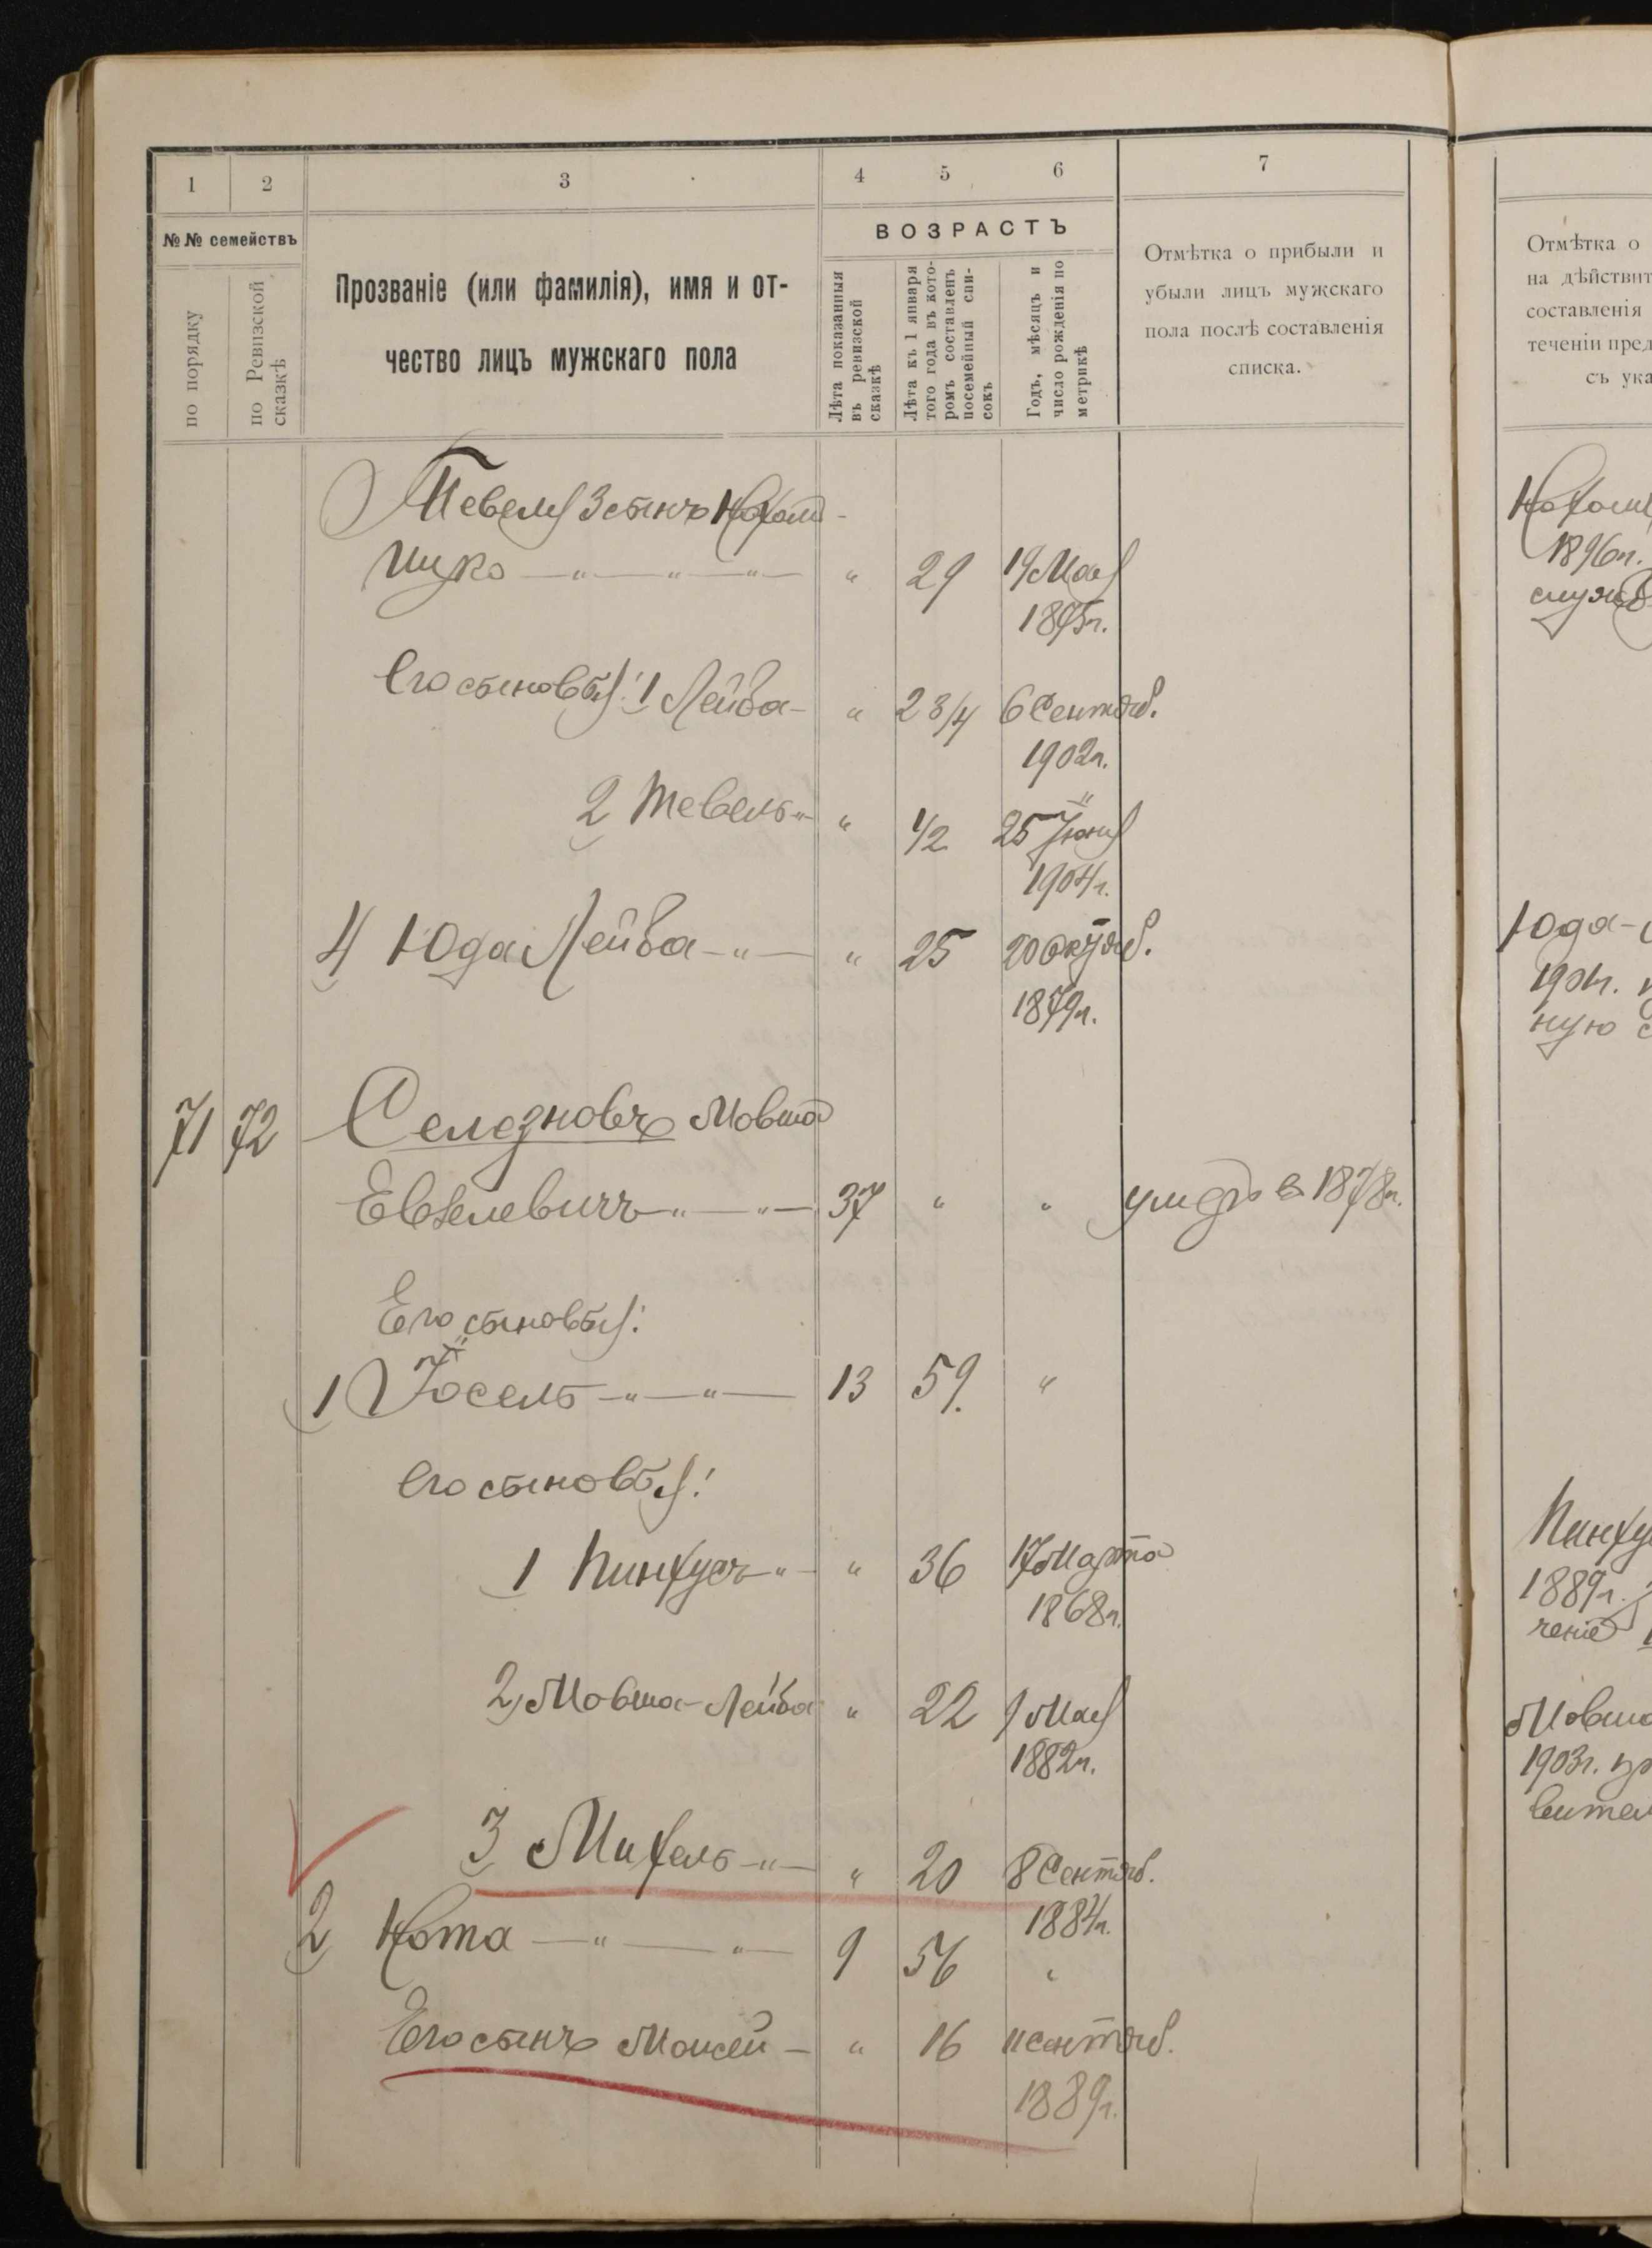 1 2 3 4 5 6 7
№№ семействъ
по порядку
по Ревизской сказкѣ
Прозваніе (или фамилія), имя и от-
чество лицъ мужскаго пола
ВОЗРАСТЪ
Лѣта показанныя
въ ревизской
сказкѣ
Лѣта къ 1 января
того года въ кото-
ромъ составленъ
посемейный спи-
сокъ
Годъ, мѣсяцъ и
число рожденія по
метрикѣ
Отмѣтка о прибыли и
убыли лицъ мужскаго
пола послѣ составленія
списка.
Отмѣтка о
на дѣйствит
составленія
теченіи пред
съ ука
Тевеля 3 сынъ Нохом-
Ицко — " — " — " — " 29 19 Мая
1875г.
Его сыновья: 1 Лейба - " 2 3/4 6 Сентяб.
1902г.
2 Тевель - " " 1/2 25 Іюня
1904г.
4 Юда Лейба - " - " 25 20 Октяб.
1879г.
71 72 Селезновъ Мовша
Евзелевичъ - " - " - 37 " " умеръ в 1878г.
Его сыновья:
1 Іосель - " - " - 13 59. "
Его сыновья:
1 Пинхусъ - " - " 36 17 Марта
1868г.
2 Мовша-Лейба " 22 9 Мая
1882г.
3 Михель - " - " 20 8 Сентяб.
1884г.
2 Нота - " - " - 9 56 "
Его сынъ Моисей - " 16 11 сентяб.
1889г.
Нохом
1896г.
служб
Юда-
1901г.
ную
Пинху
1889г.
ченіе
Мовша
1903г. пр
вител